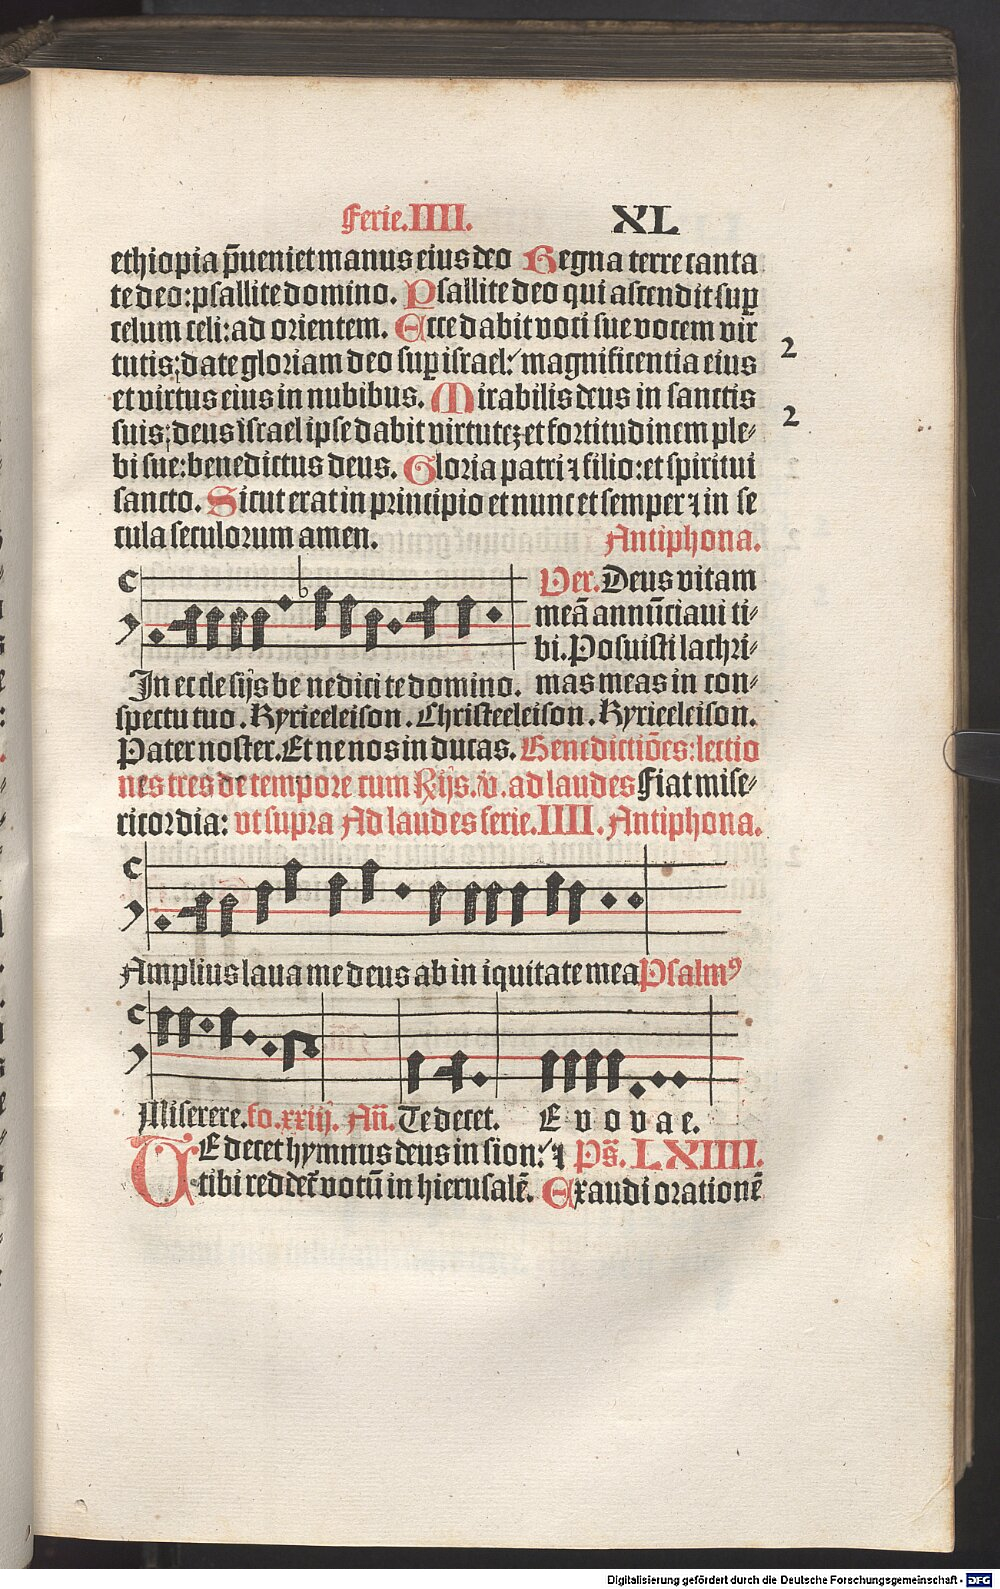 Ferie.IIII. XL
ethiopia p̄ueniet manus eius deo Regna terre canta
te deo: psallite domino. Psallite deo qui ascendit suꝑ
celum celi: ad orientem. Ecce dabit voci sue vocem vir
tutis; date gloriam deo suꝑ israel:⸍ magnificentia eius
2
et virtus eius in nubibus. Mirabilis deus in sanctis
2
suis; deus israel ipse dabit virtutēz et fortitudinem ple⸗
bi sue: benedictus deus. Gloria patri ⁊ filio: et spiritui
sancto. Sicut erat in principio et nunc et semper ⁊ in se
cula seculorum amen. Antiphona.
In ecclesijs benedicite domino.
Ver. Deus vitam
meā annūciaui ti⸗
bi. Posuisti lachri⸗
mas meas in con⸗
spectu tuo. Kyrieeleison. Christeeleison. Kyrieeleison.
Pater noster. Et ne nos inducas. Benedictiōes: lectio
nes tres de tempore cum Rijs. v̄. ad laudes Fiat mise⸗
ricordia: vt supra Ad laudes ferie.IIII. Antiphona.
Amplius laua me deus ab in iquitate mea Psalmꝰ
Miserere. fo. xxiij. Añ. Te decet. E v o v a e.
TE decet hymnus deus in sion:⸍ ⁊ Ps̄. LXIIII.
tibi reddet̄ votū in hierusalē. Exaudi orationē
Digitalisierung gefördert durch die Deutsche Forschungsgemeinschaft - DFG